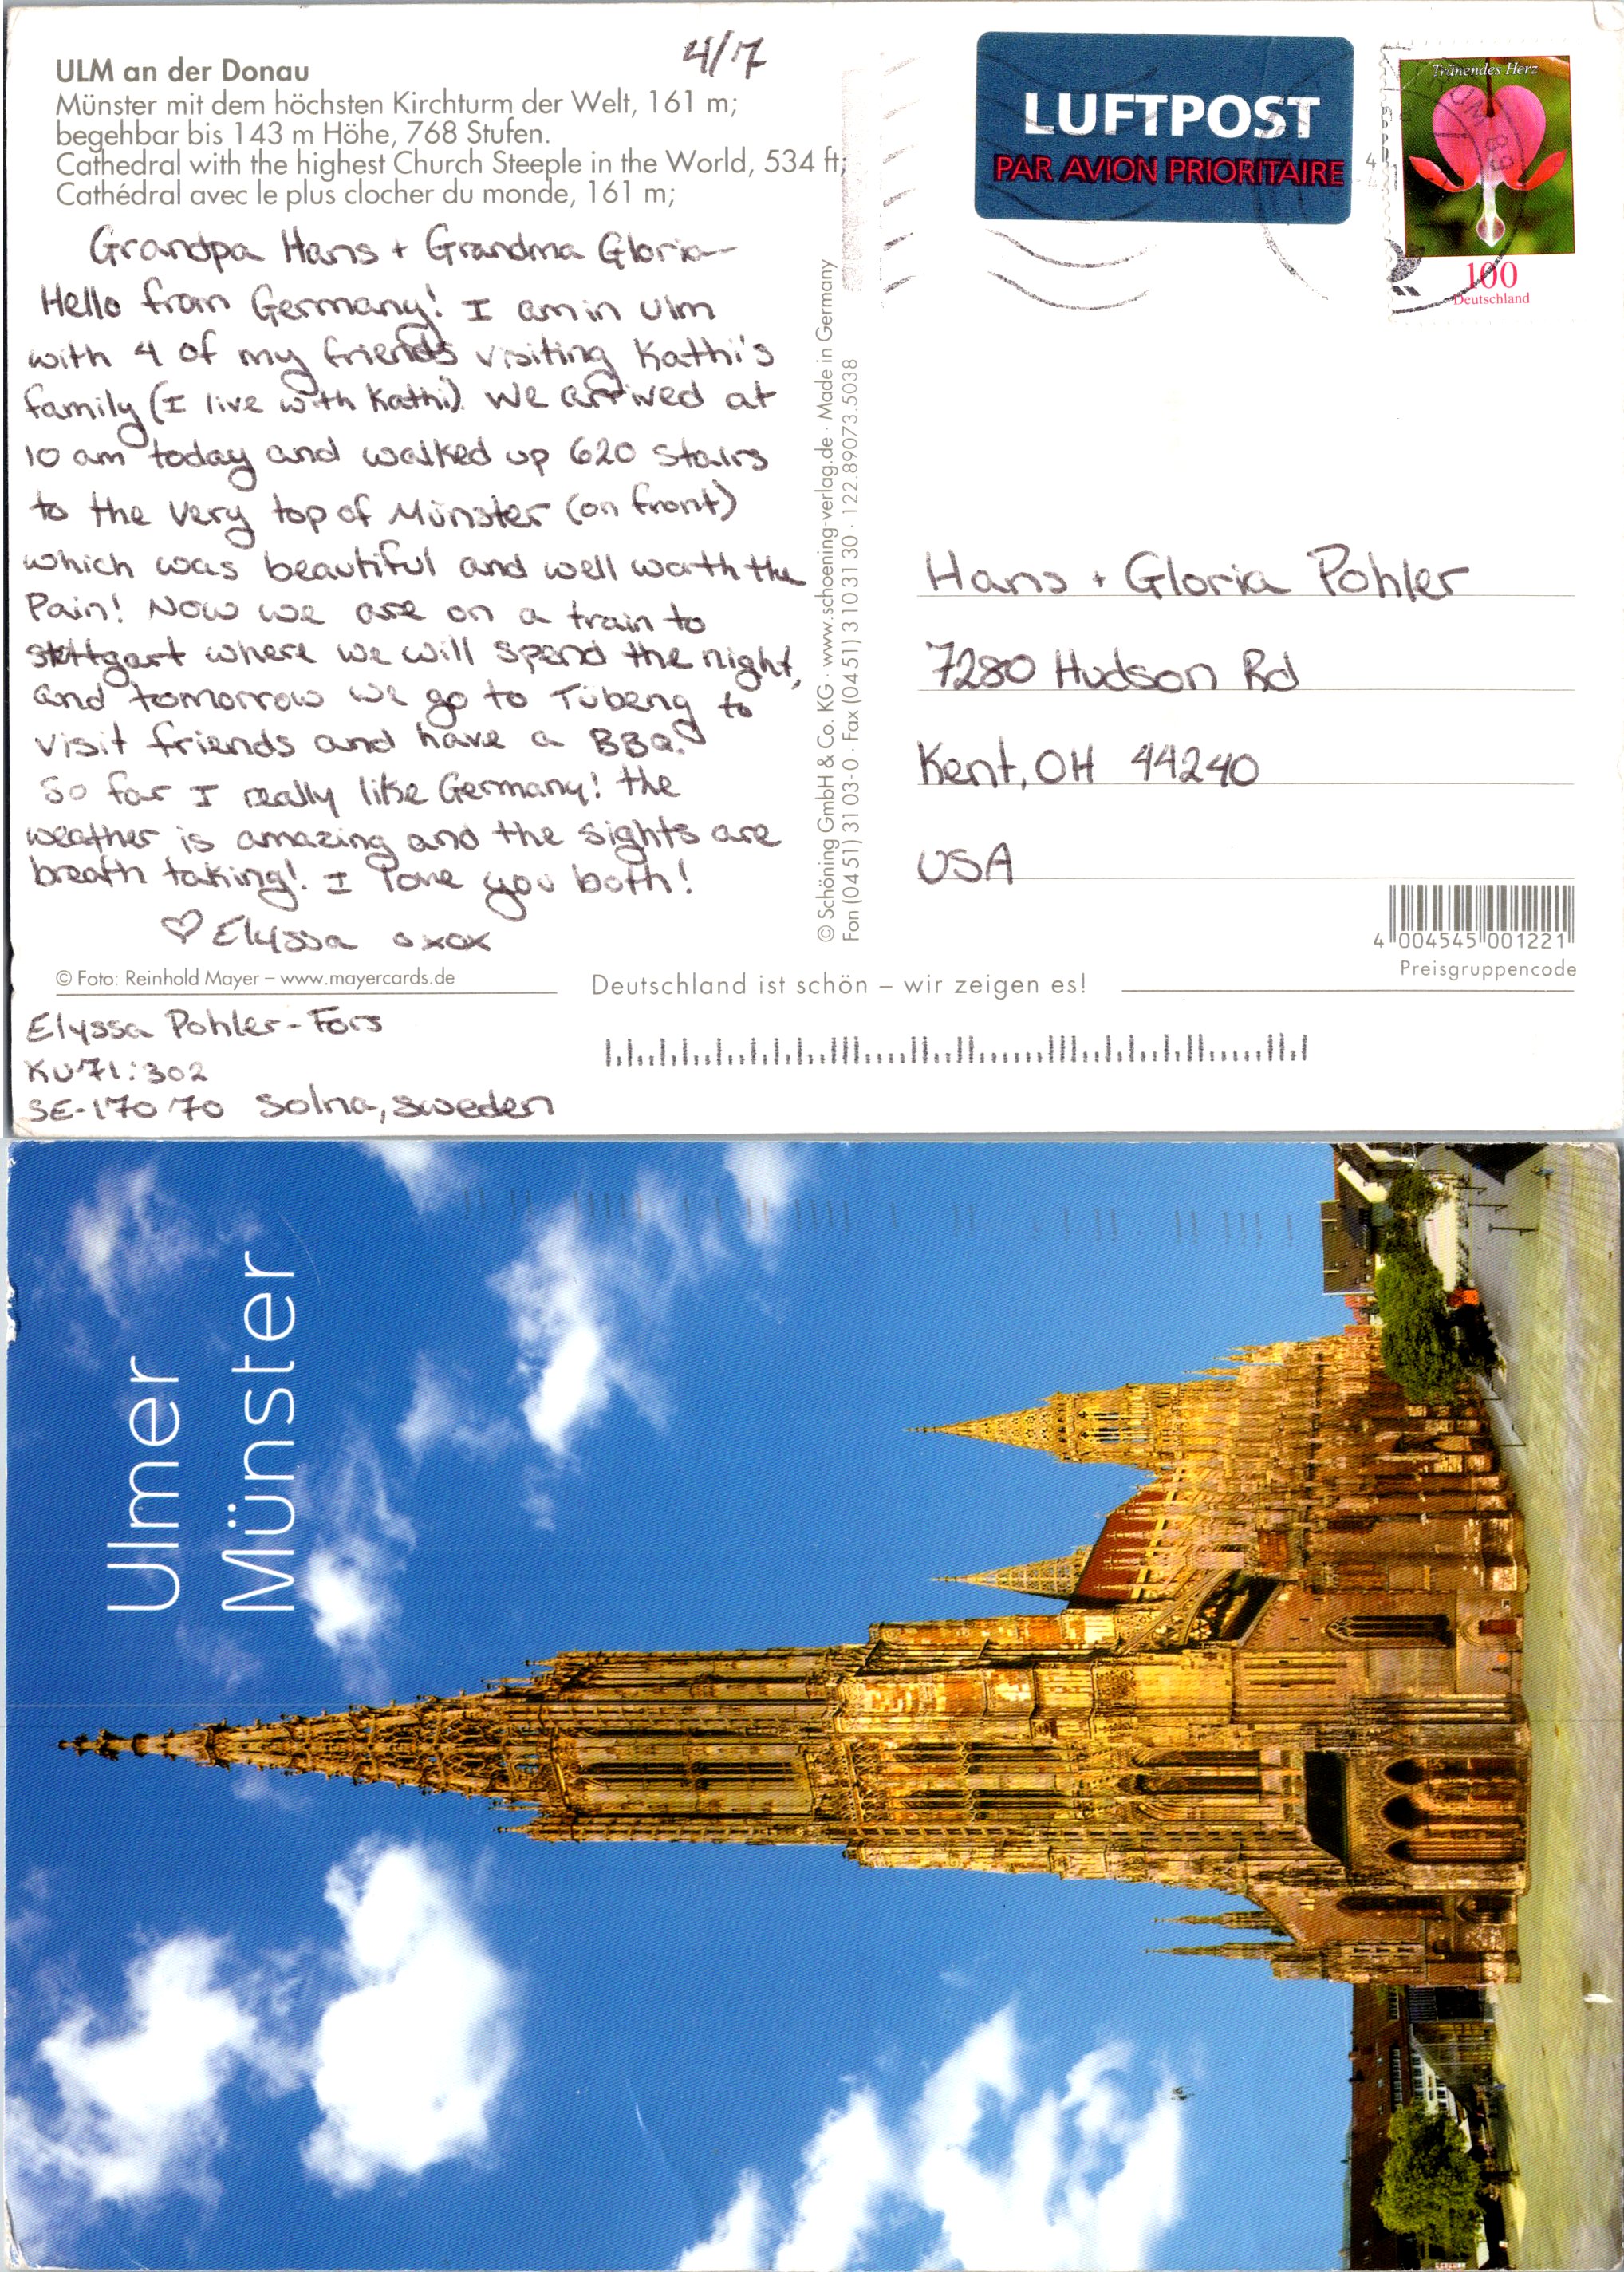 ULM an der Donau
Münster mit dem höchsten Kirchturm der Welt, 161 m;
begehbar bis 143 m Höhe, 768 Stufen.
Cathedral with the highest Church Steeple in the World, 534 ft;
Cathédral avec le plus clocher du monde, 161 m;
4/17
Grandpa Hans + Grandma Gloria-
Hello from Germany! I am in Ulm
with 4 of my friends visiting Kathi's
family (I live with Kathi). We arrived at
10 am today and walked up 620 stairs
to the very top of Münster (on front)
which was beautiful and well worth the
Pain! Now we are on a train to
Stuttgart where we will spend the night,
and tomorrow we go to Tübeng to
visit friends and have a BBQ.
So far I really like Germany! the
weather is amazing and the sights are
breath taking! I love you both!
♡ Elyssa oxox
© Foto: Reinhold Mayer – www.mayercards.de
Elyssa Pohler-Fors
KU71:302
SE-170 70 Solna, Sweden
© Schöning GmbH & Co. KG · www.schoening-verlag.de · Made in Germany
Fon (04 51) 31 03-0 · Fax (04 51) 3 10 31 30 · 122.89073.5038
Deutschland ist schön – wir zeigen es!
LUFTPOST
PAR AVION PRIORITAIRE
Tränendes Herz
100
Deutschland
Hans + Gloria Pohler
7280 Hudson Rd
Kent, OH 44240
USA
4 004545 001221
Preisgruppencode
Ulmer
Münster